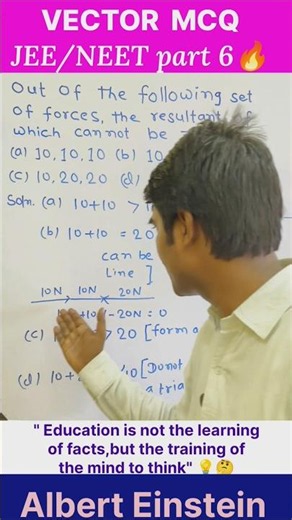 VECTOR MCQ
JEE/NEET part 6🔥
Out of the following set
of forces, the resultant of
which cannot be
(a) 10, 10, 10 (b) 10
(c) 10, 20, 20 (d)
Soln. (a) 10+10 >
(b) 10+10 = 20
can be
line ]
10N 10N 20N
+10 -20N = 0
(c) > 20 [form a
(d) 10+ [Do not
a tria
" Education is not the learning
of facts,but the training of
the mind to think" 💡🤔
Albert Einstein